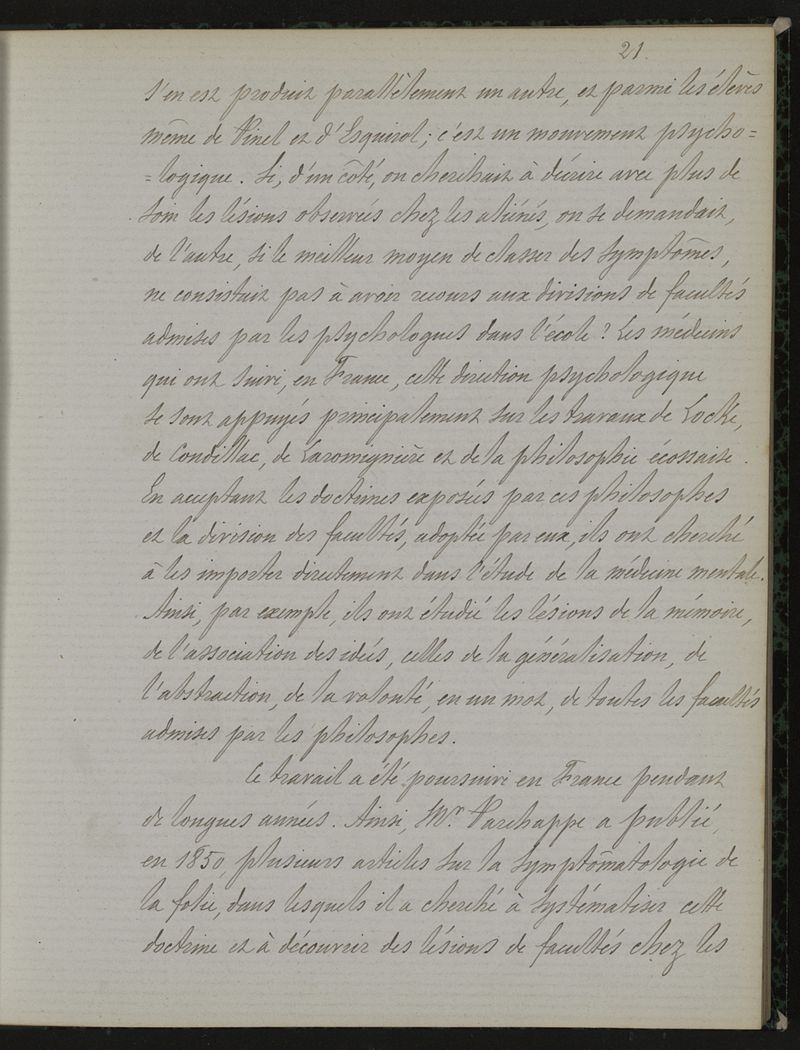 21.
s'en est produit parallèlement un autre, et parmi les élèves
même de Pinel et d'Esquirol; c'est un mouvement psycho=
=logique. Si, d'un côté, on cherchait à décrire avec plus de
soin les lésions observées chez les aliénés, on se demandait,
de l'autre, si le meilleur moyen de classer des symptômes,
ne consistait pas à avoir recours aux divisions de facultés
admises par les psychologues dans l'école? Les médecins
qui ont suivi, en France, cette direction psychologique
se sont appuyés principalement sur les travaux de Locke,
de Condillac, de Laromignière et de la philosophie écossaise.
En acceptant les doctrines exposées par ces philosophes
et la division des facultés, adoptée par eux, ils ont cherché
à les importer directement dans l'étude de la médecine mentale.
Ainsi, par exemple, ils ont étudié les lésions de la mémoire,
de l'association des idées, celles de la généralisation, de
l'abstraction, de la volonté, en un mot, de toutes les facultés
admises par les philosophes.
Ce travail a été poursuivi en France pendant
de longues années. Ainsi, Mr. Parchappe a publié,
en 1850, plusieurs articles sur la symptômatologie de
la folie, dans lesquels il a cherché à systématiser cette
doctrine et à découvrir des lésions de facultés chez les